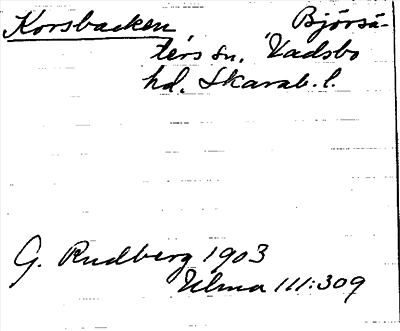 Korsbacken Björsä-
ters sn, Vadsbo
hd. Skarab. l.
G. Rudberg 1903
Ulma 111:309